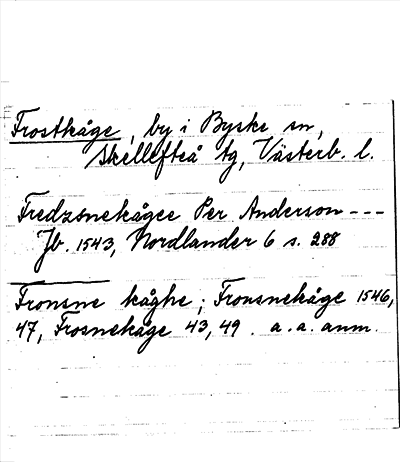 Frostkåge, by i Byske sn,
Skellefteå tg, Västerb. l.
Fredzsnekågee Per Anderson ---
Jb. 1543, Nordlander 6 s. 288
Fronsne kåghe; Fronsnekåge 1546,
47, Frosnekåge 43, 49. a. a. anm.